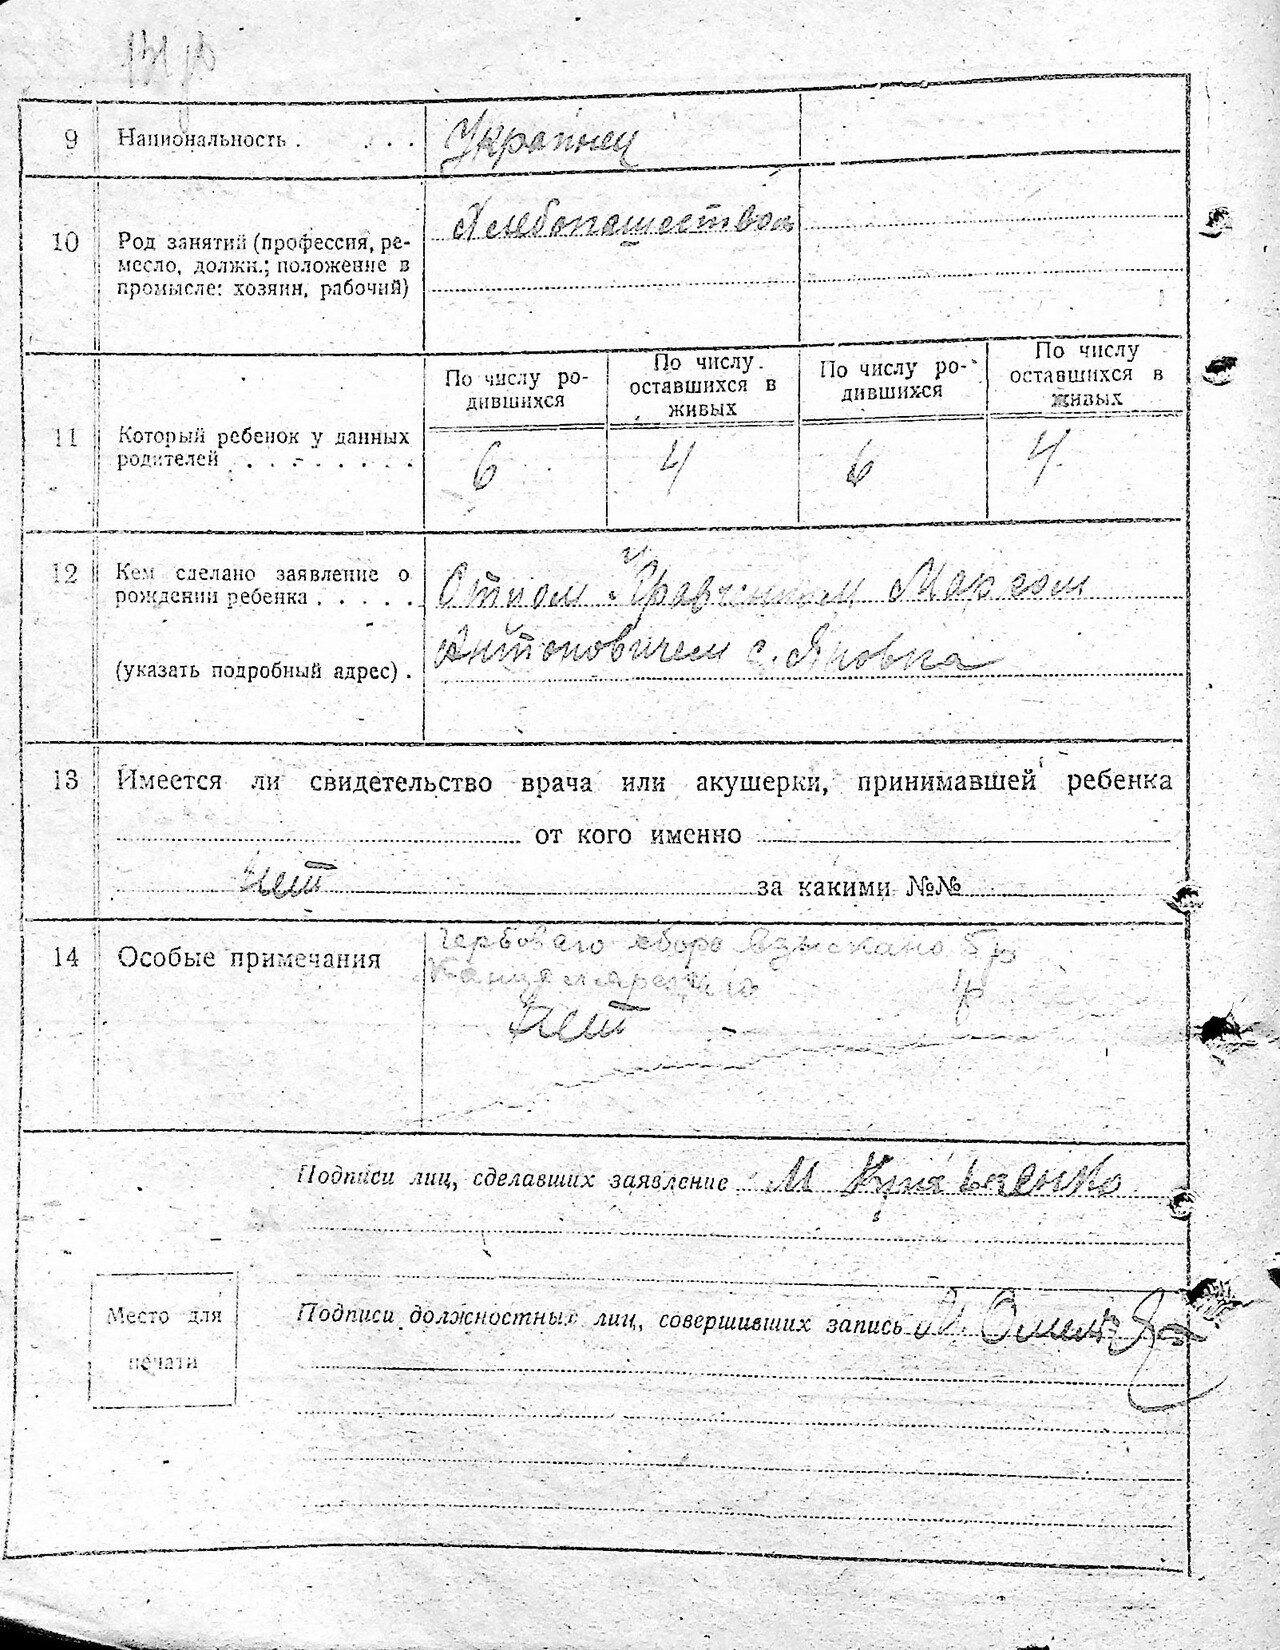 131 об
9 Национальность . . . . Украинец
10 Род занятий (профессия, ре-
месло, должн.; положение в
промысле: хозяин, рабочий)
Хлебопашеством
11 Который ребенок у данных
родителей . . . . . . . .
По числу ро-
дившихся
По числу
оставшихся в
живых
По числу ро-
дившихся
По числу
оставшихся в
живых
6 4 6 4
12 Кем сделано заявление о
рождении ребенка . . . . .
(указать подробный адрес) .
Отцом Кравченком Марком
Антоновичем с. Яновка
13 Имеется ли свидетельство врача или акушерки, принимавшей ребенка
от кого именно
Нет за какими №№
14 Особые примечания
Гербоваго сбора взыскано 5 р
Канцелярскаго 1р
Нет
Подписи лиц, сделавших заявление М Кравченко
Место для
печати
Подписи должностных лиц, совершивших запись